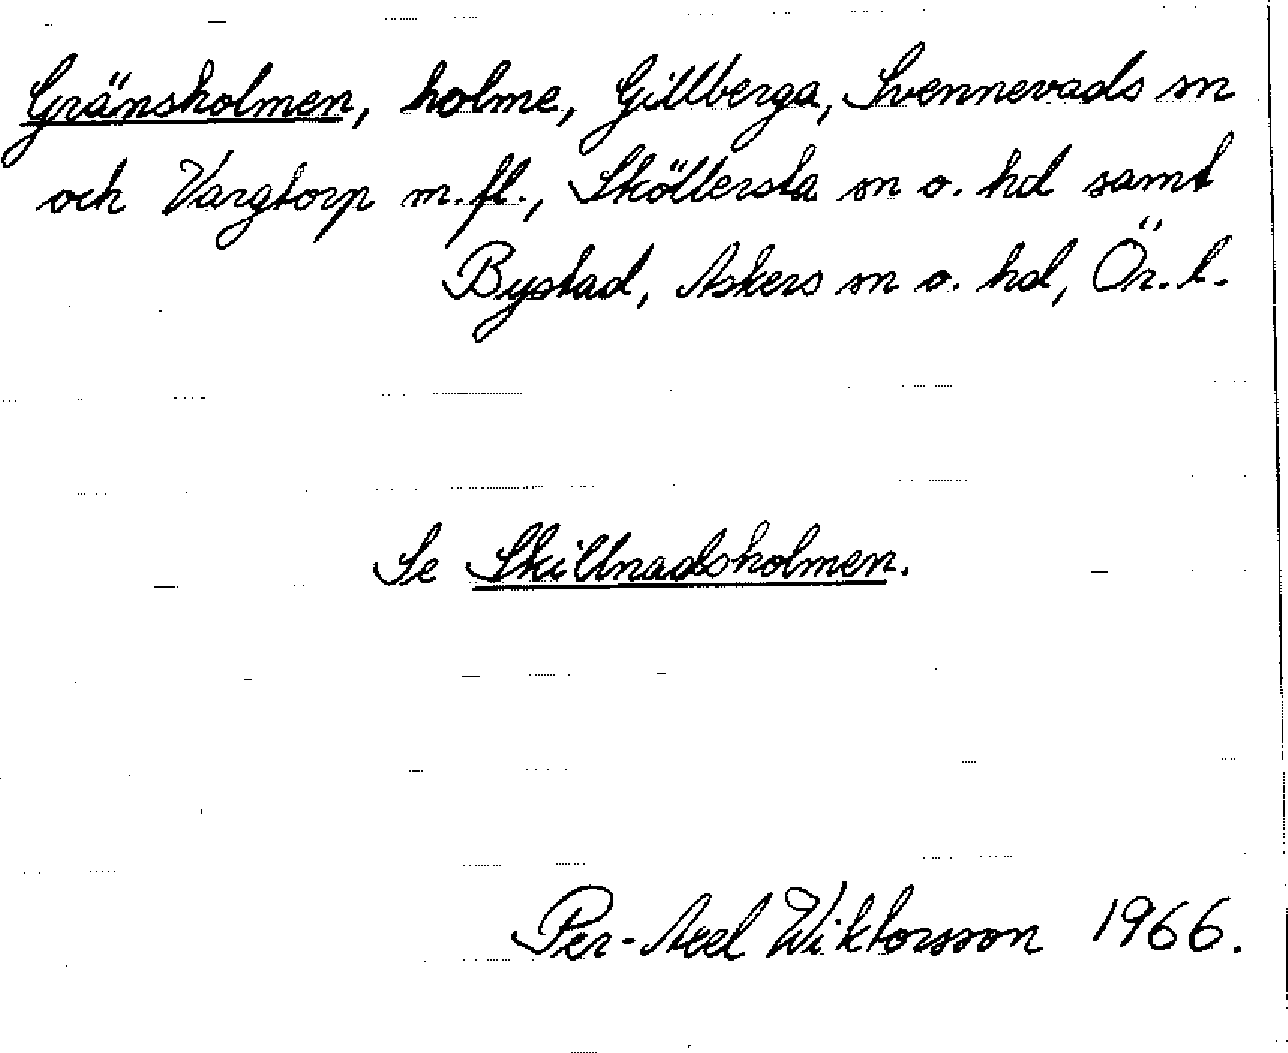 Gränsholmen, holme, Gillberga, Svennevads sn
och Vargtorp m.fl., Sköllersta sn o. hd samt
Bystad, Askers sn o. hd, Ör. l.
Se Skillnadsholmen.
Per-Axel Wiktorsson 1966.